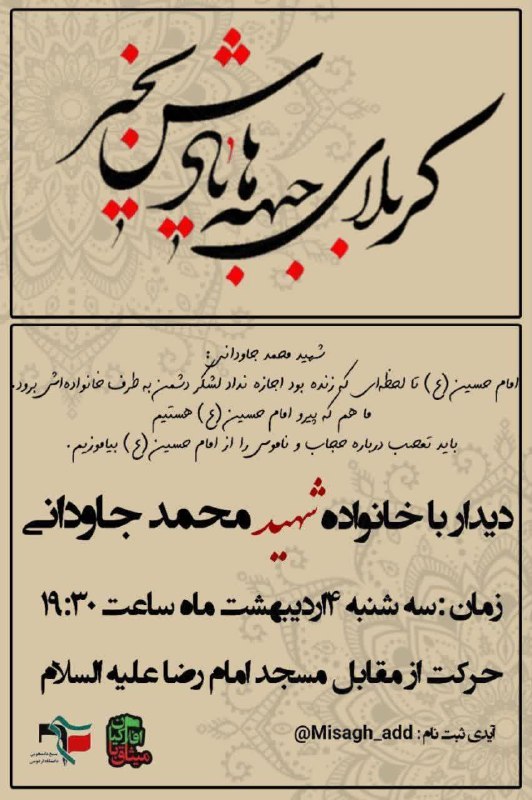 کربلای جبهه ها یادش بخیر
شهید محمد جاودانی:
امام حسین(ع) تا لحظه‌ای که زنده بود اجازه نداد لشگر دشمن به طرف خانواده‌اش برود.
ما هم که پیرو امام حسین(ع) هستیم
باید تعصب درباره حجاب و ناموسی را از امام حسین(ع) بیاموزیم.
دیدار با خانواده شهید محمد جاودانی
زمان: سه شنبه ۴اردیبهشت ماه ساعت ۱۹:۳۰
حرکت از مقابل مسجد امام رضا علیه السلام
آیدی ثبت نام: @Misagh_add
میثاق با
افلاکیان
بسیج دانشجویی
دانشگاه فردوسی